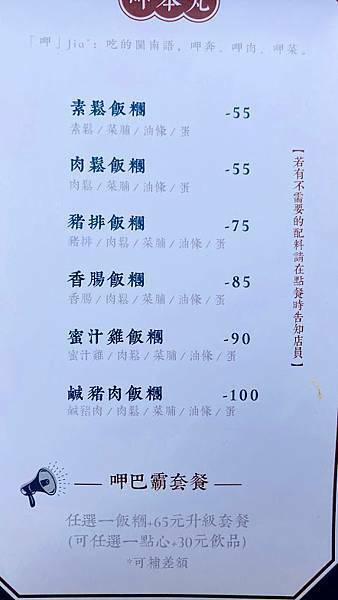 呷本丸
「呷」Jiaˇ: 吃的閩南語，呷奔、呷肉、呷菜。
素鬆飯糰 -55
素鬆/菜脯/油條/蛋
肉鬆飯糰 -55
肉鬆/菜脯/油條/蛋
豬排飯糰 -75
豬排/肉鬆/菜脯/油條/蛋
香腸飯糰 -85
香腸/肉鬆/菜脯/油條/蛋
蜜汁雞飯糰 -90
蜜汁雞/肉鬆/菜脯/油條/蛋
鹹豬肉飯糰 -100
鹹豬肉/肉鬆/菜脯/油條/蛋
【若有不需要的配料請在點餐時告知店員】
— 呷巴霸套餐 —
任選一飯糰+65元升級套餐
(可任選一點心+30元飲品)
*可補差額